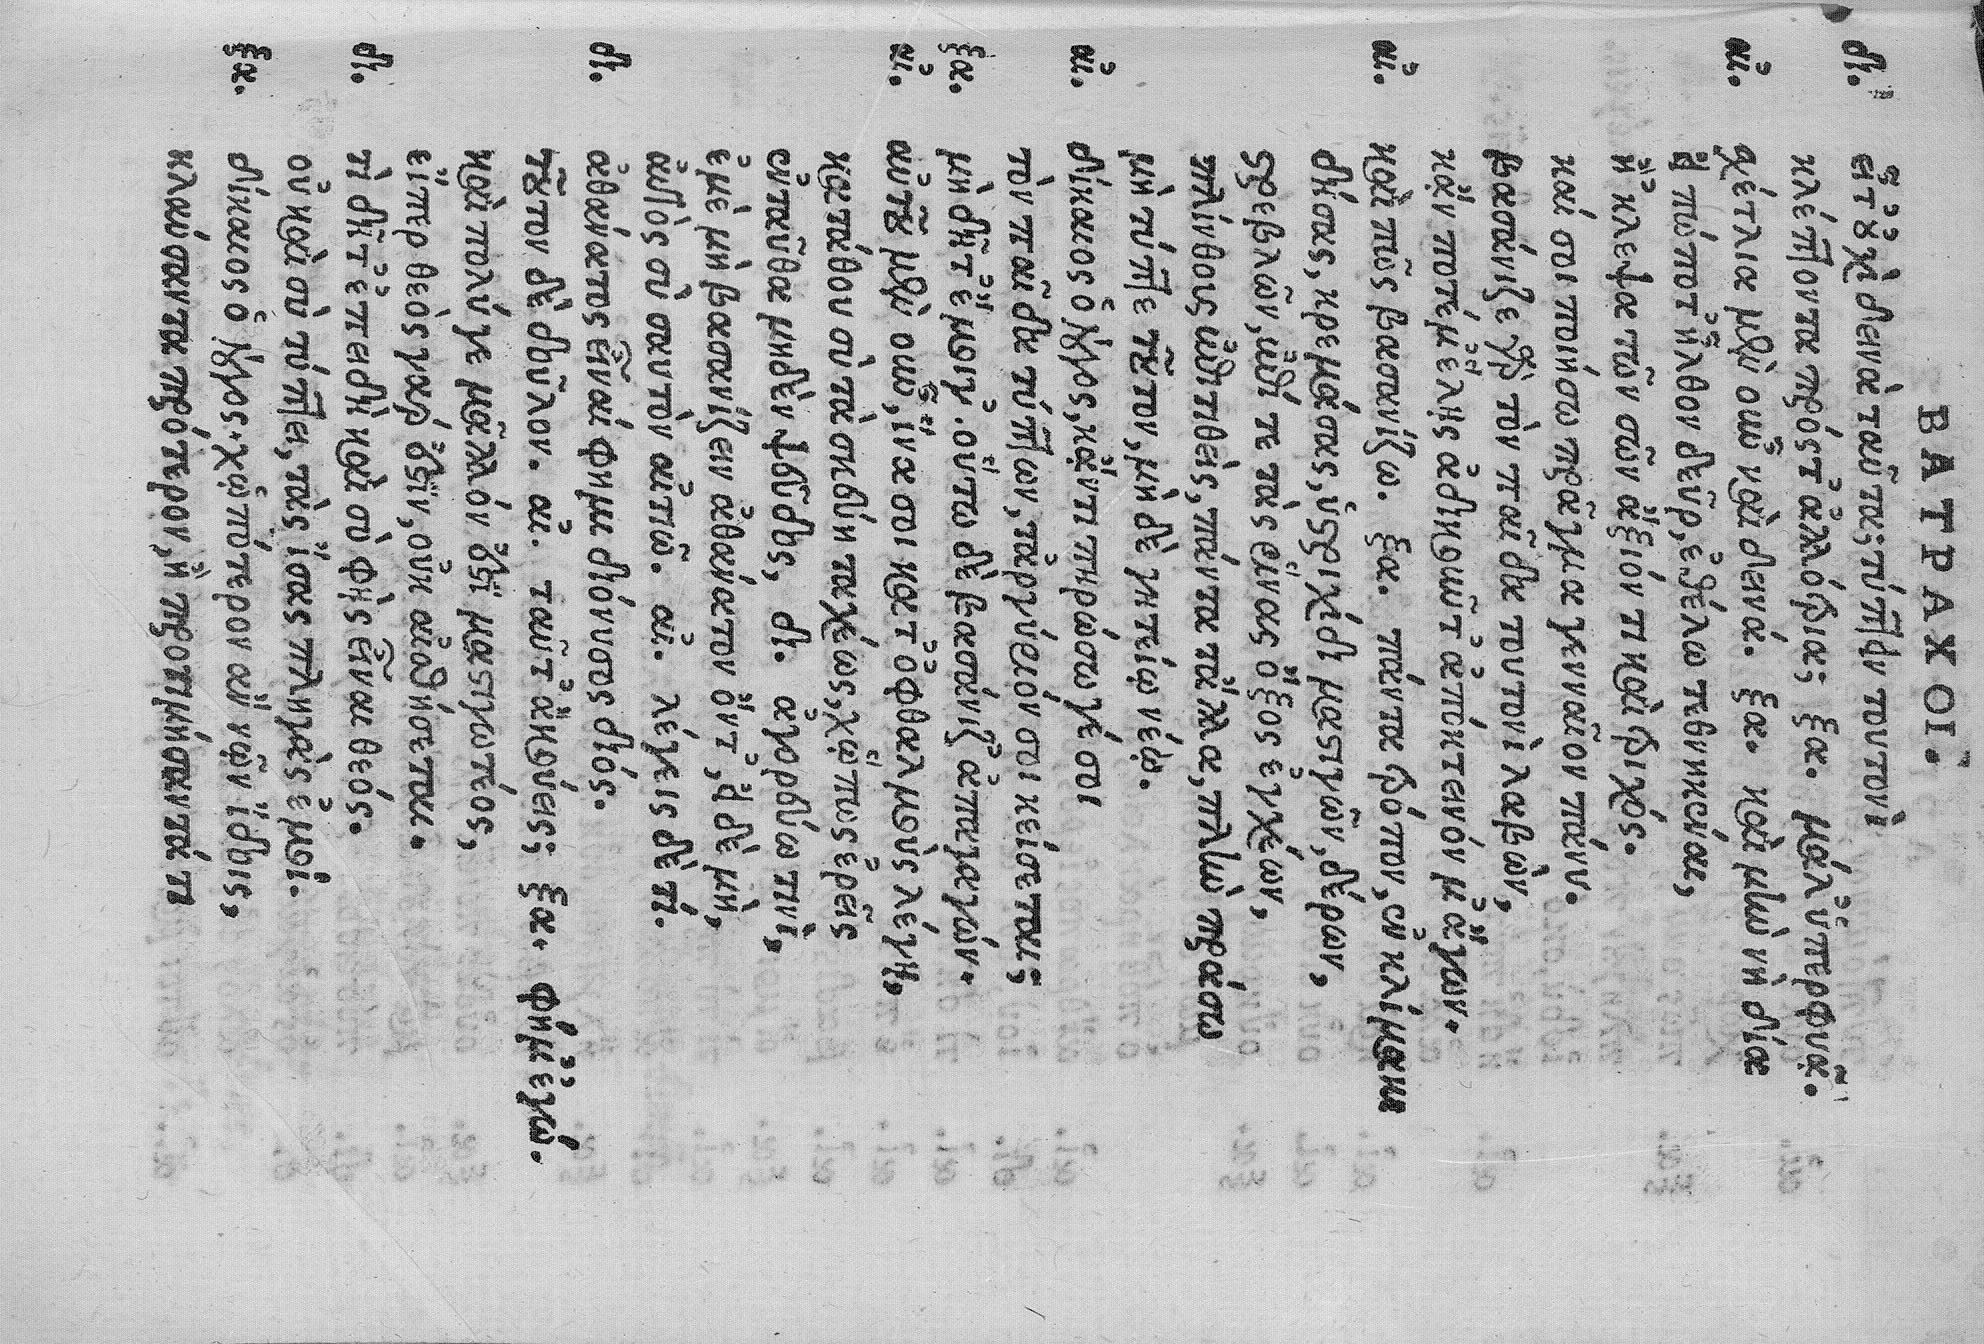 ΒΑΤΡΑΧΟΙ.
δι. εἶτ' οὐχὶ δεινὰ ταῦτα; τύπτειν τουτονὶ
κλέπτοντα πρός τ' ἀλλότρια; ξα. μάλ' ὑπερφυᾶ.
αἰ. σχέτλια μὲν οὖν καὶ δεινά. ξα. καὶ μὴν νὴ δία
εἰ πώποτ' ἦλθον δεῦρ', ἐθέλω τεθνηκέναι,
ἢ 'κλεψα τῶν σῶν ἄξιόν τι καὶ τριχός.
καί σοι ποιήσω πρᾶγμα γενναῖον πάνυ.
βασάνιζε γὰρ τὸν παῖδα τουτονὶ λαβὼν,
κἄν ποτέ μ' ἕλῃς ἀδικοῦντ' ἀπόκτεινόν μ' ἄγων.
αἰ. καὶ πῶς βασανίζω. ξα. πάντα τρόπον, ἐν κλίμακι
δήσας, κρεμάσας, ὑστριχίδι μαστιγῶν, δέρων,
στρεβλῶν, ἔτι τε τὰς ῥίνας ὄξος ἐγχέων,
πλίνθους ἐπιτιθεὶς, πάντα τἄλλα, πλὴν πράσω
μὴ τύπτε τοῦτον, μὴ δὲ γητείῳ νέῳ.
αἰ. δίκαιος ὁ λόγος, κἄν τι πηρώσω γέ σοι
τὸν παῖδα τύπτων, τἀργύριόν σοι κείσεται;
ξα. μὴ δῆτ' ἔμοιγ'. οὕτω δὲ βασάνιζ' ἀπαγαγών.
αἰ. αὐτοῦ μὲν οὖν, ἵνα σοι κατ' ὀφθαλμοὺς λέγῃ,
κατάθου σὺ τὰ σκεύη ταχέως, χὤπως ἐρεῖς
ἐνταῦθα μηδὲν ψεῦδος, δι. ἀγορεύω τινὶ,
ἐμὲ μὴ βασανίζειν ἀθάνατον ὄντ', εἰ δὲ μὴ,
αὐτὸς σὺ σαυτὸν αἰτιῶ. αἰ. λέγεις δὲ τί.
δι. ἀθάνατος εἶναί φημι διόνυσος διός.
τοῦτον δὲ δοῦλον. αἰ. ταῦτ' ἀκούεις; ξα. φήμ' ἐγώ.
καὶ πολύ γε μᾶλλόν ἐστι μαστιγωτέος,
εἴπερ θεὸς γάρ ἐστιν, οὐκ αἰσθήσεται.
δι. τὶ δῆτ' ἐπειδὴ καὶ σὺ φῂς εἶναι θεός.
οὐ καὶ σὺ τύπτει, τὰς ἴσας πληγὰς ἐμοί.
ξα. δίκαιος ὁ λόγος. χὠπότερον ἂν νῷν ἴδοις,
κλαύσαντα πρότερον, ἢ προτιμήσαντά τι